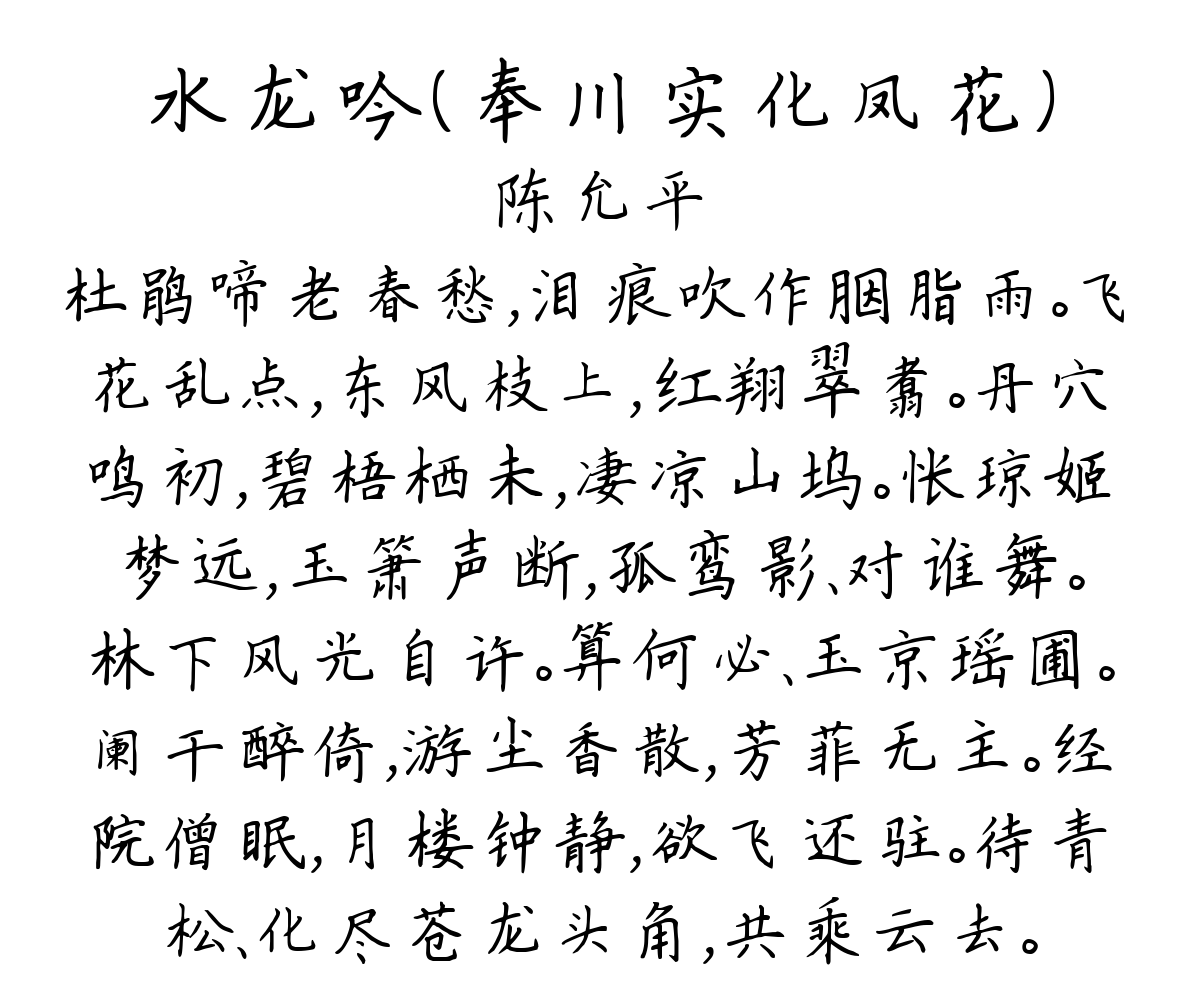 水龙吟(奉川实化凤花)
陈允平
杜鹃啼老春愁,泪痕吹作胭脂雨。飞
花乱点,东风枝上,红翔翠翥。丹穴
鸣初,碧梧栖未,凄凉山坞。怅琼姬
梦远,玉箫声断,孤鸾影、对谁舞。
林下风光自许。算何必、玉京瑶圃。
阑干醉倚,游尘香散,芳菲无主。经
院僧眠,月楼钟静,欲飞还驻。待青
松、化尽苍龙头角,共乘云去。